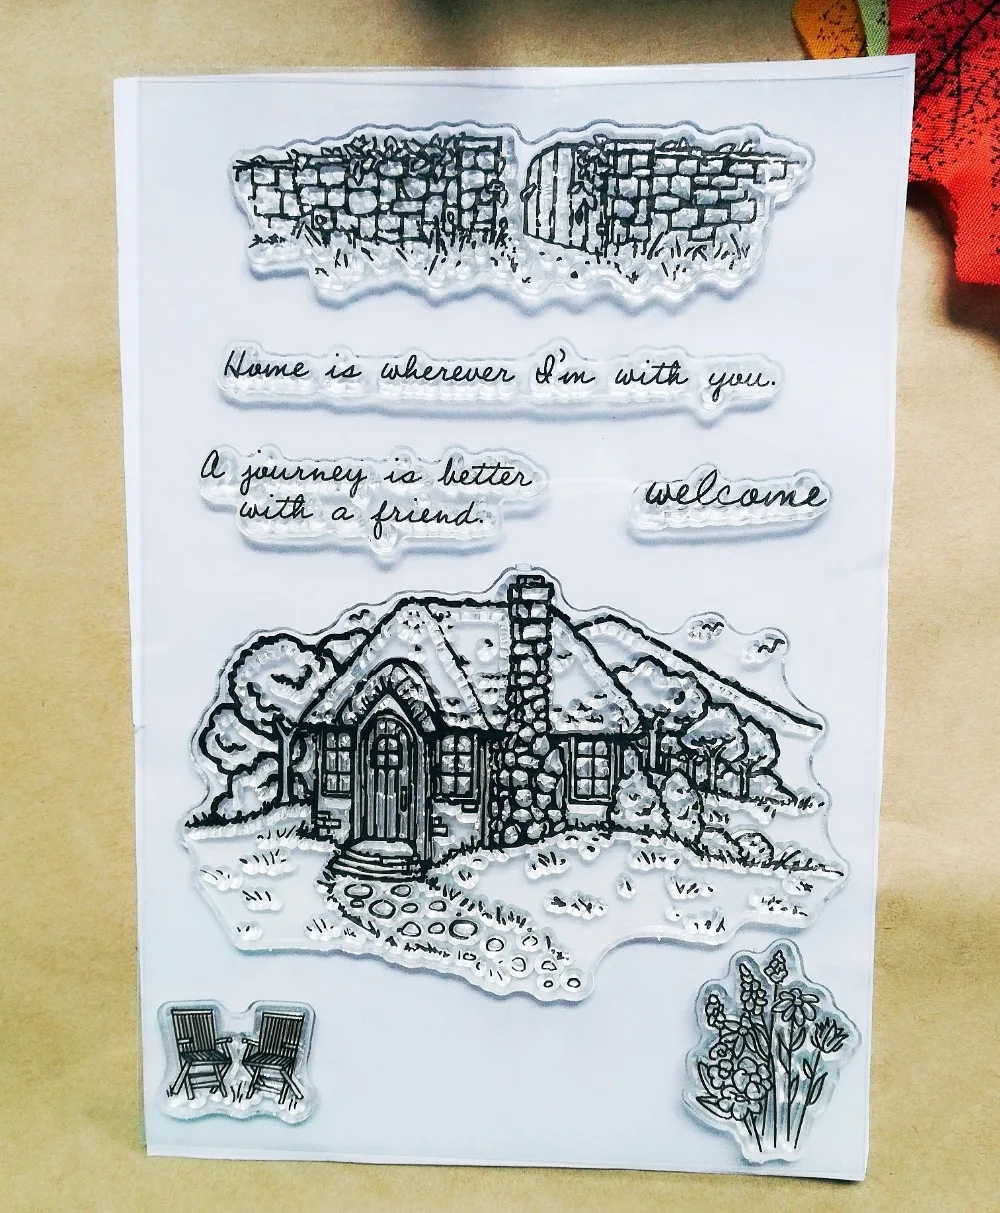 Home is wherever I'm with you.
A journey is better
with a friend.
welcome